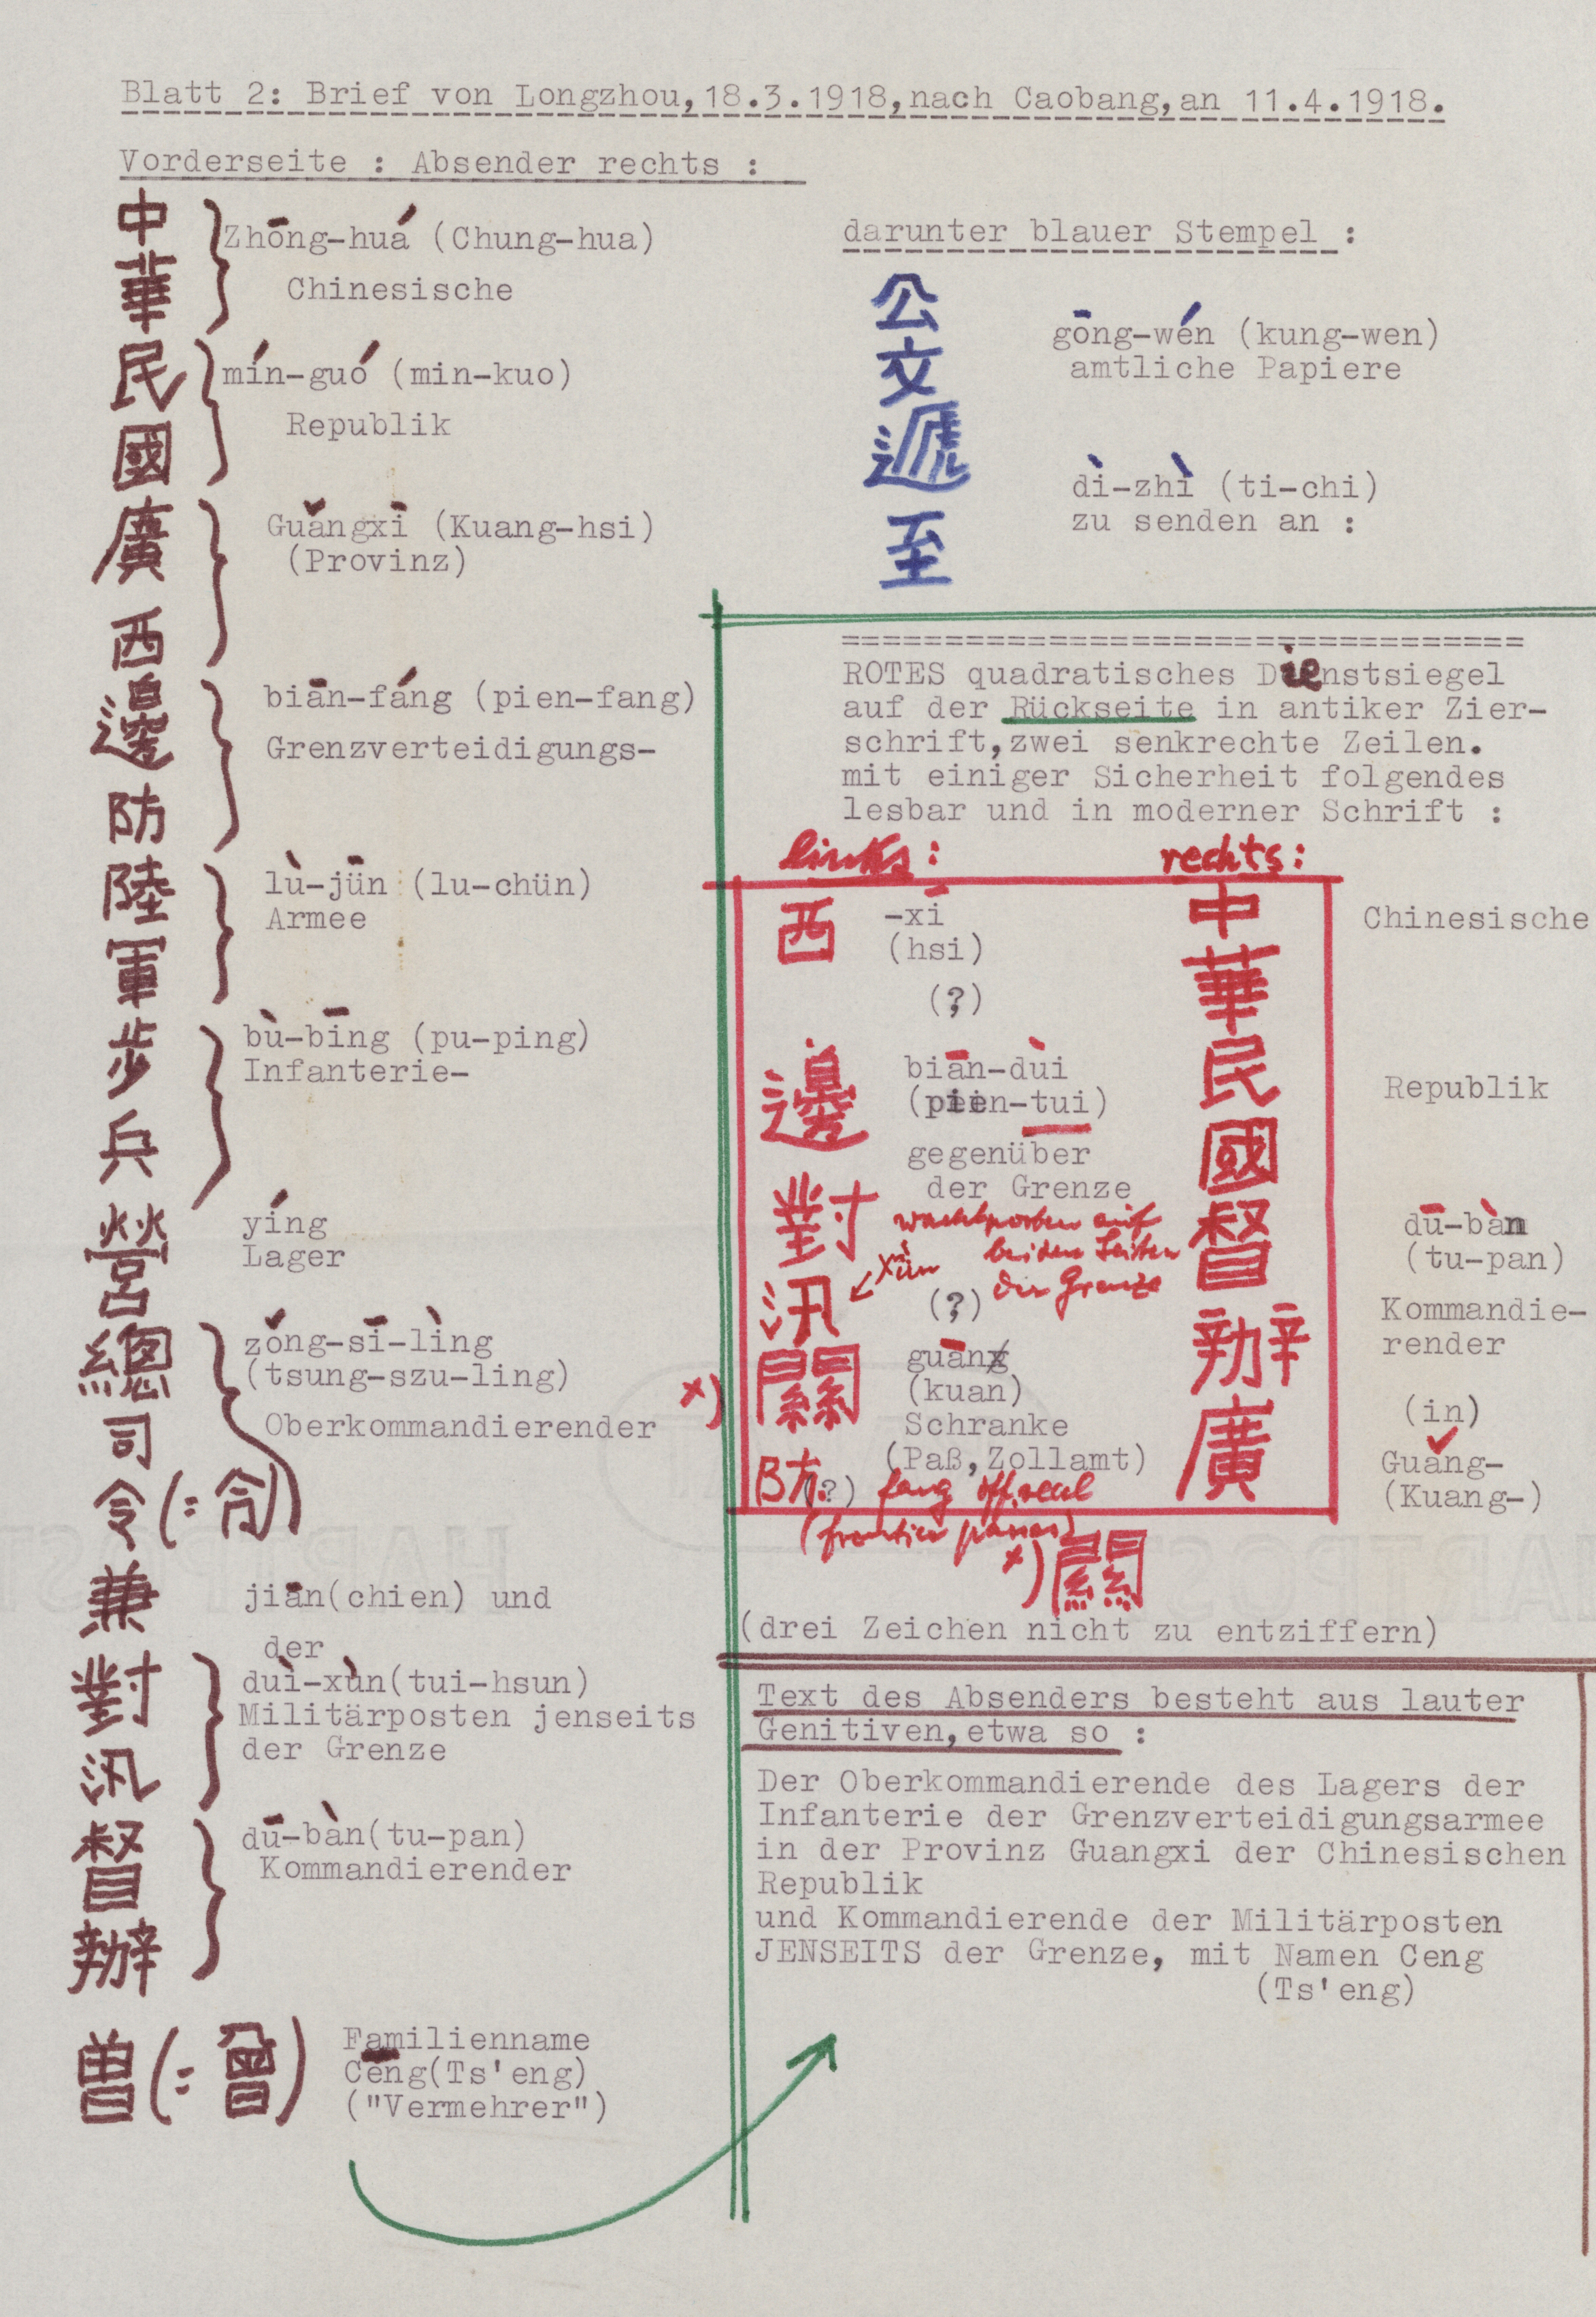 Blatt 2: Brief von Longzhou,18.3.1918,nach Caobang,an 11.4.1918.
Vorderseite : Absender rechts :
中華
Zhōng-huá (Chung-hua)
Chinesische
民國
mín-guó (min-kuo)
Republik
廣西
Guǎngxī (Kuang-hsi)
(Provinz)
邊防
biān-fáng (pien-fang)
Grenzverteidigungs-
陸軍
lù-jūn (lu-chün)
Armee
步兵
bù-bīng (pu-ping)
Infanterie-
營
yíng
Lager
總司令(=令)
zǒng-sī-lìng
(tsung-szu-ling)
Oberkommandierender
兼
jiān(chien) und
der
對汛
duì-xùn(tui-hsun)
Militärposten jenseits
der Grenze
督辦
dū-bàn(tu-pan)
Kommandierender
曾(=曾)
Familienname
Cēng(Ts'eng)
("Vermehrer")
darunter blauer Stempel :
公文
gōng-wén (kung-wen)
amtliche Papiere
遞至
dì-zhì (ti-chi)
zu senden an :
=================================
ROTES quadratisches Dienstsiegel
auf der Rückseite in antiker Zier-
schrift,zwei senkrechte Zeilen.
mit einiger Sicherheit folgendes
lesbar und in moderner Schrift :
links:
西
-xī
(hsi)
(?)
邊對
biān-dùi
(pien-tui)
gegenüber
der Grenze
wachtposten auf
beiden Seiten
der Grenze
汛
xùn
(?)
x)
關
guān
(kuan)
Schranke
(Paß,Zollamt)
防
(?)
fang off.seal
(frontier passes)
x) 關
rechts:
中華
Chinesische
民國
Republik
督辦
dū-bàn
(tu-pan)
Kommandie-
render
(in)
廣
Guǎng-
(Kuang-)
(drei Zeichen nicht zu entziffern)
Text des Absenders besteht aus lauter
Genitiven,etwa so :
Der Oberkommandierende des Lagers der
Infanterie der Grenzverteidigungsarmee
in der Provinz Guangxi der Chinesischen
Republik
und Kommandierende der Militärposten
JENSEITS der Grenze, mit Namen Ceng
(Ts'eng)